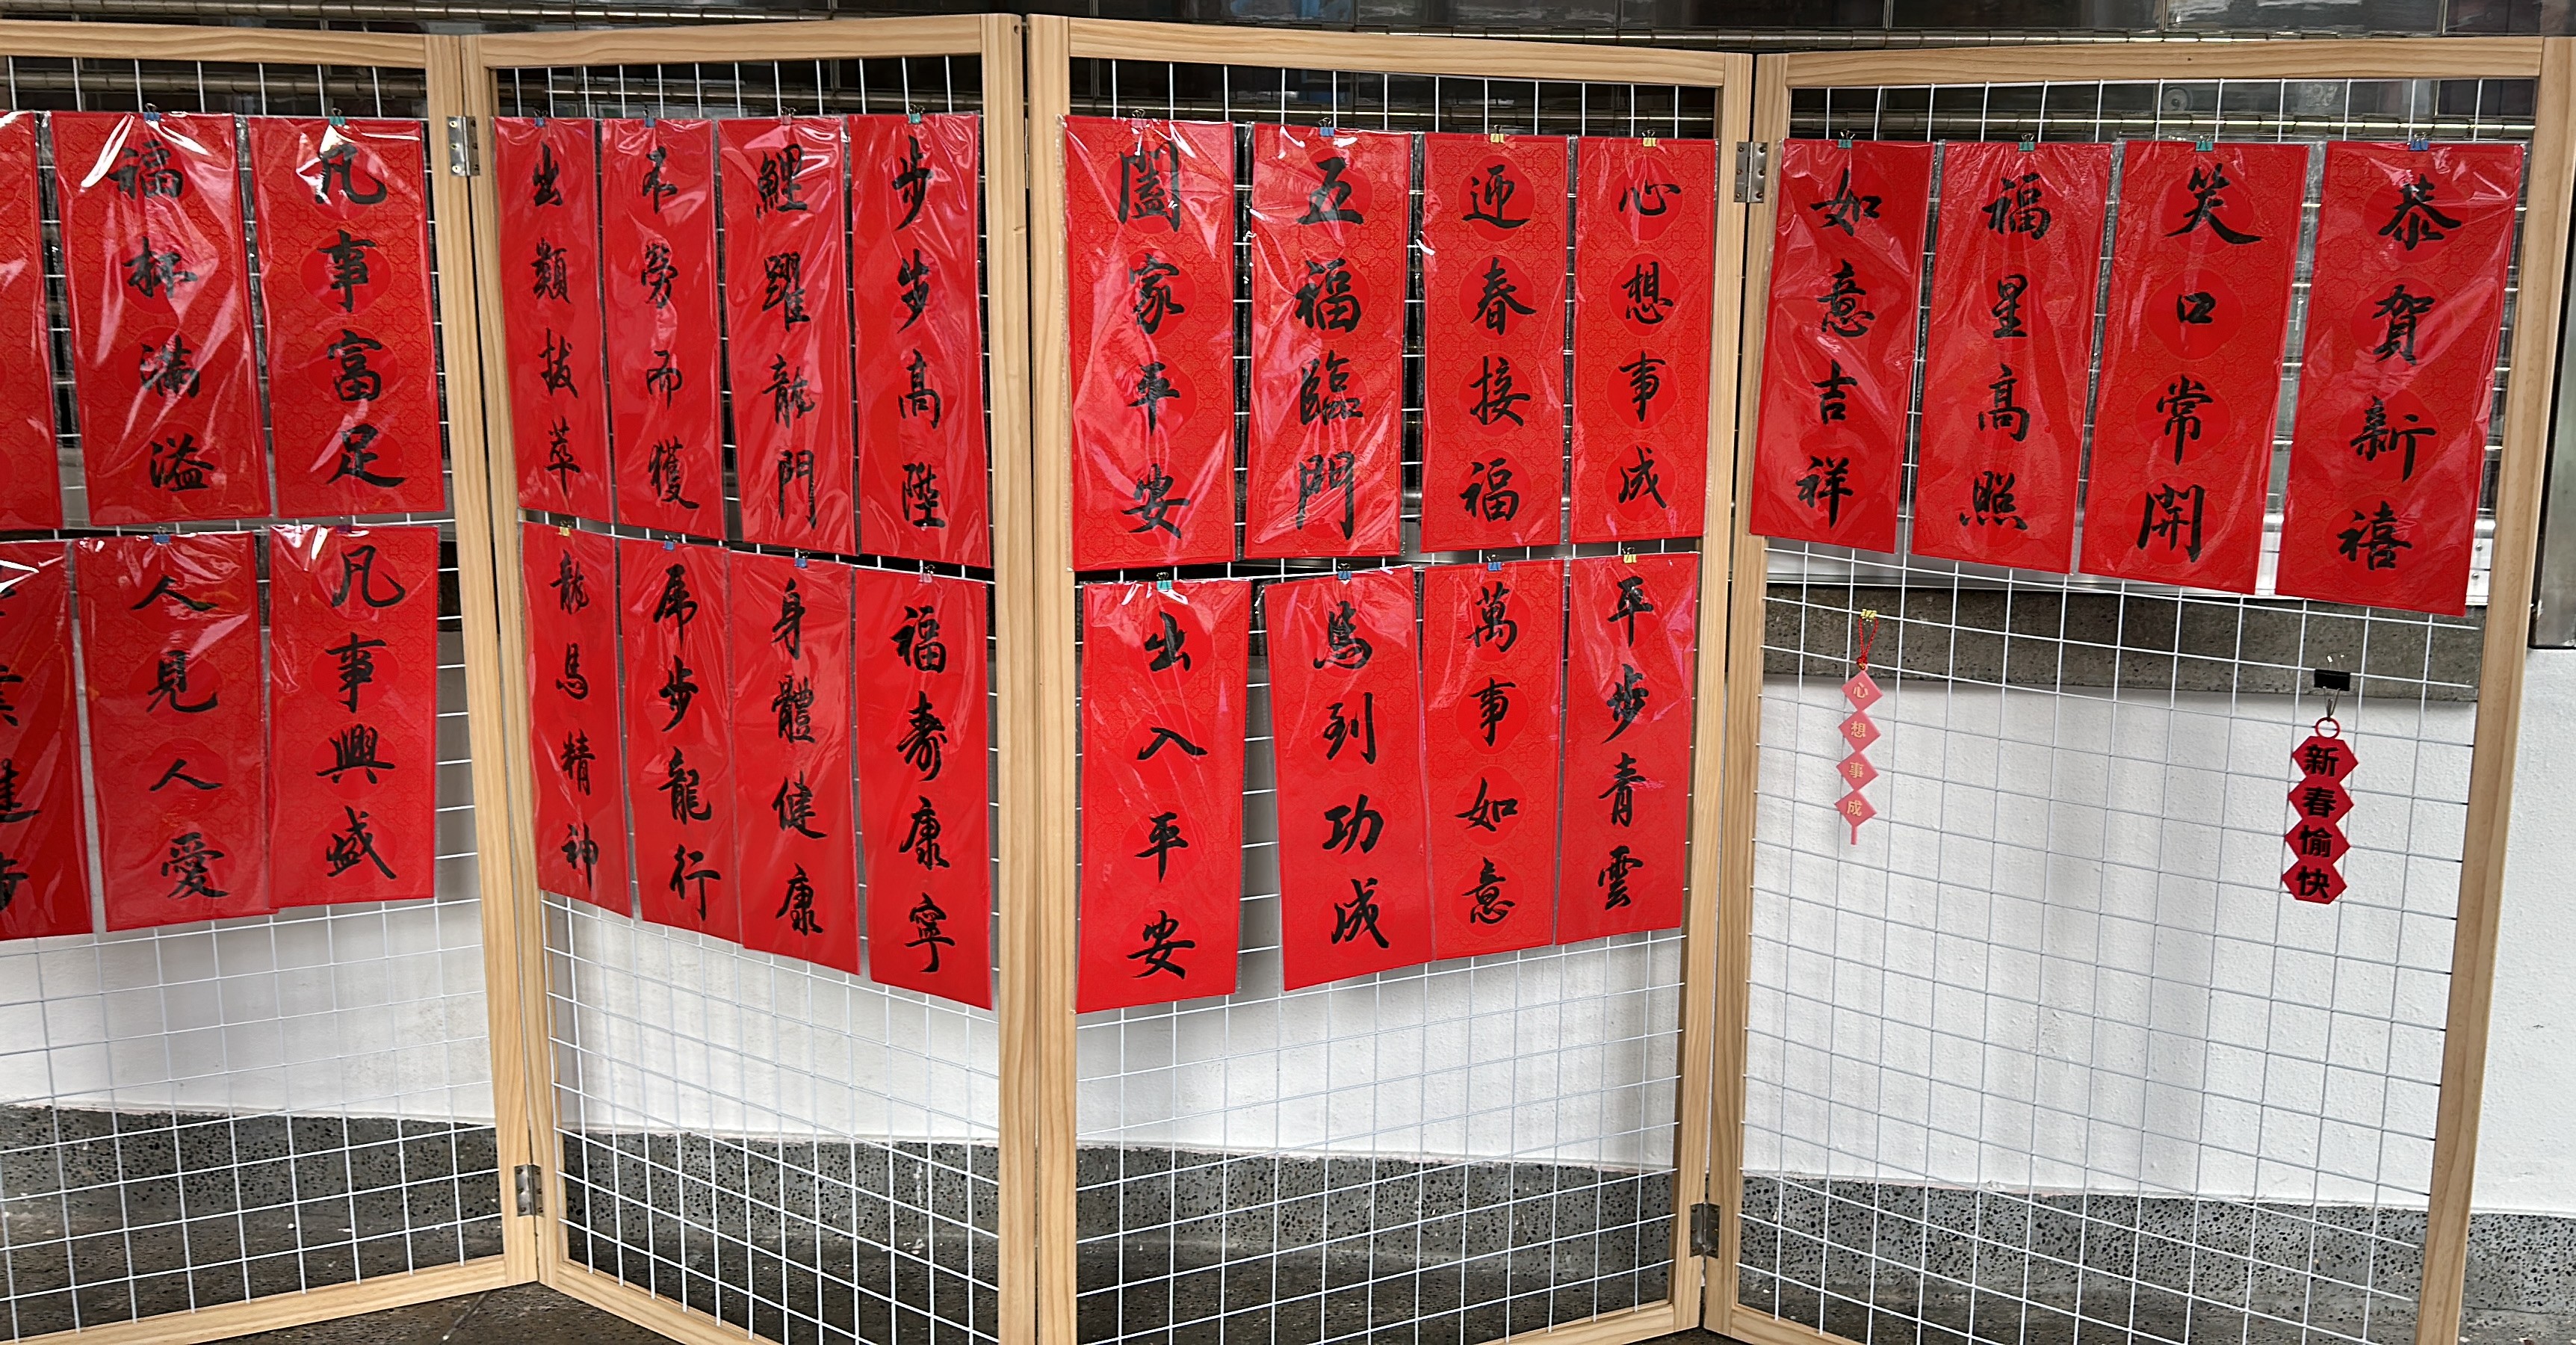 恭賀新禧
笑口常開
福星高照
如意吉祥
新春愉快
心想事成
心想事成
迎春接福
五福臨門
闔家平安
平步青雲
萬事如意
馬到功成
出入平安
步步高陞
鯉躍龍門
不勞而獲
出類拔萃
福壽康寧
身體健康
虎步龍行
龍馬精神
凡事富足
福杯滿溢
凡事興盛
人見人愛